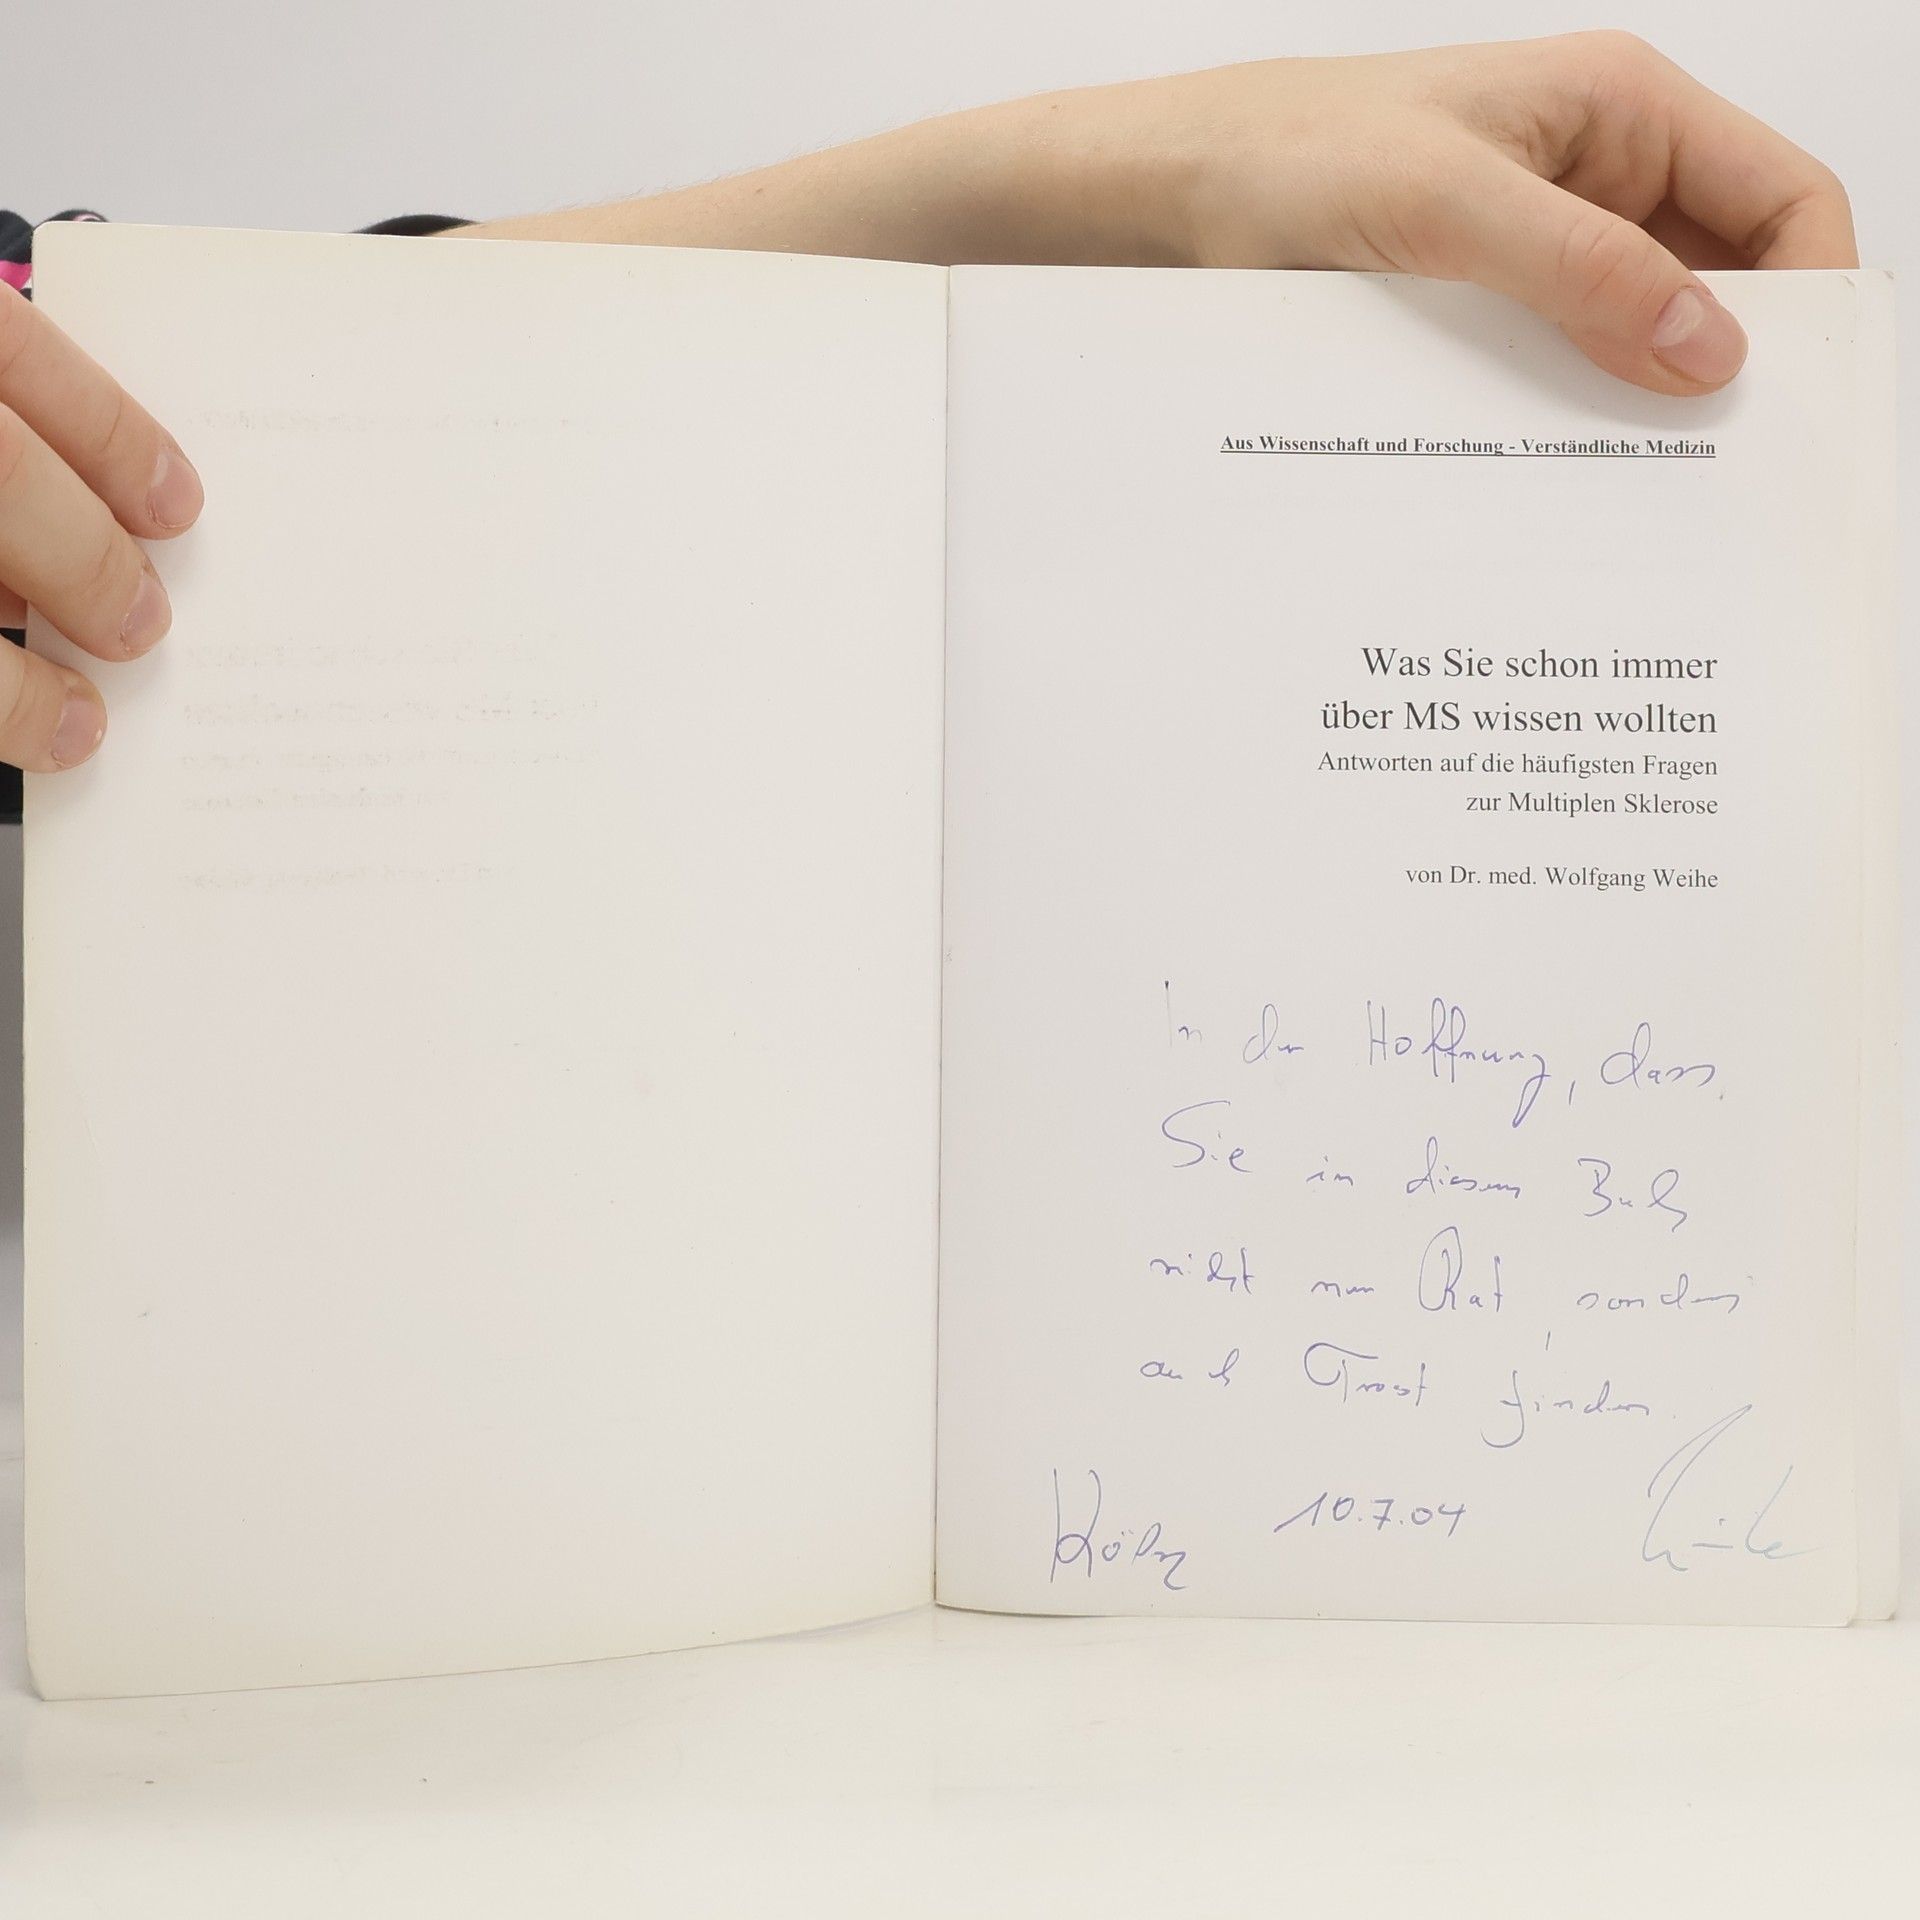 Aus Wissenschaft und Forschung - Verständliche Medizin
Was Sie schon immer
über MS wissen wollten
Antworten auf die häufigsten Fragen
zur Multiplen Sklerose
von Dr. med. Wolfgang Weihe
In der Hoffnung, dass
Sie in diesem Buch
nicht nur Rat sondern
auch Trost finden.
Köln 10.7.04 Weihe